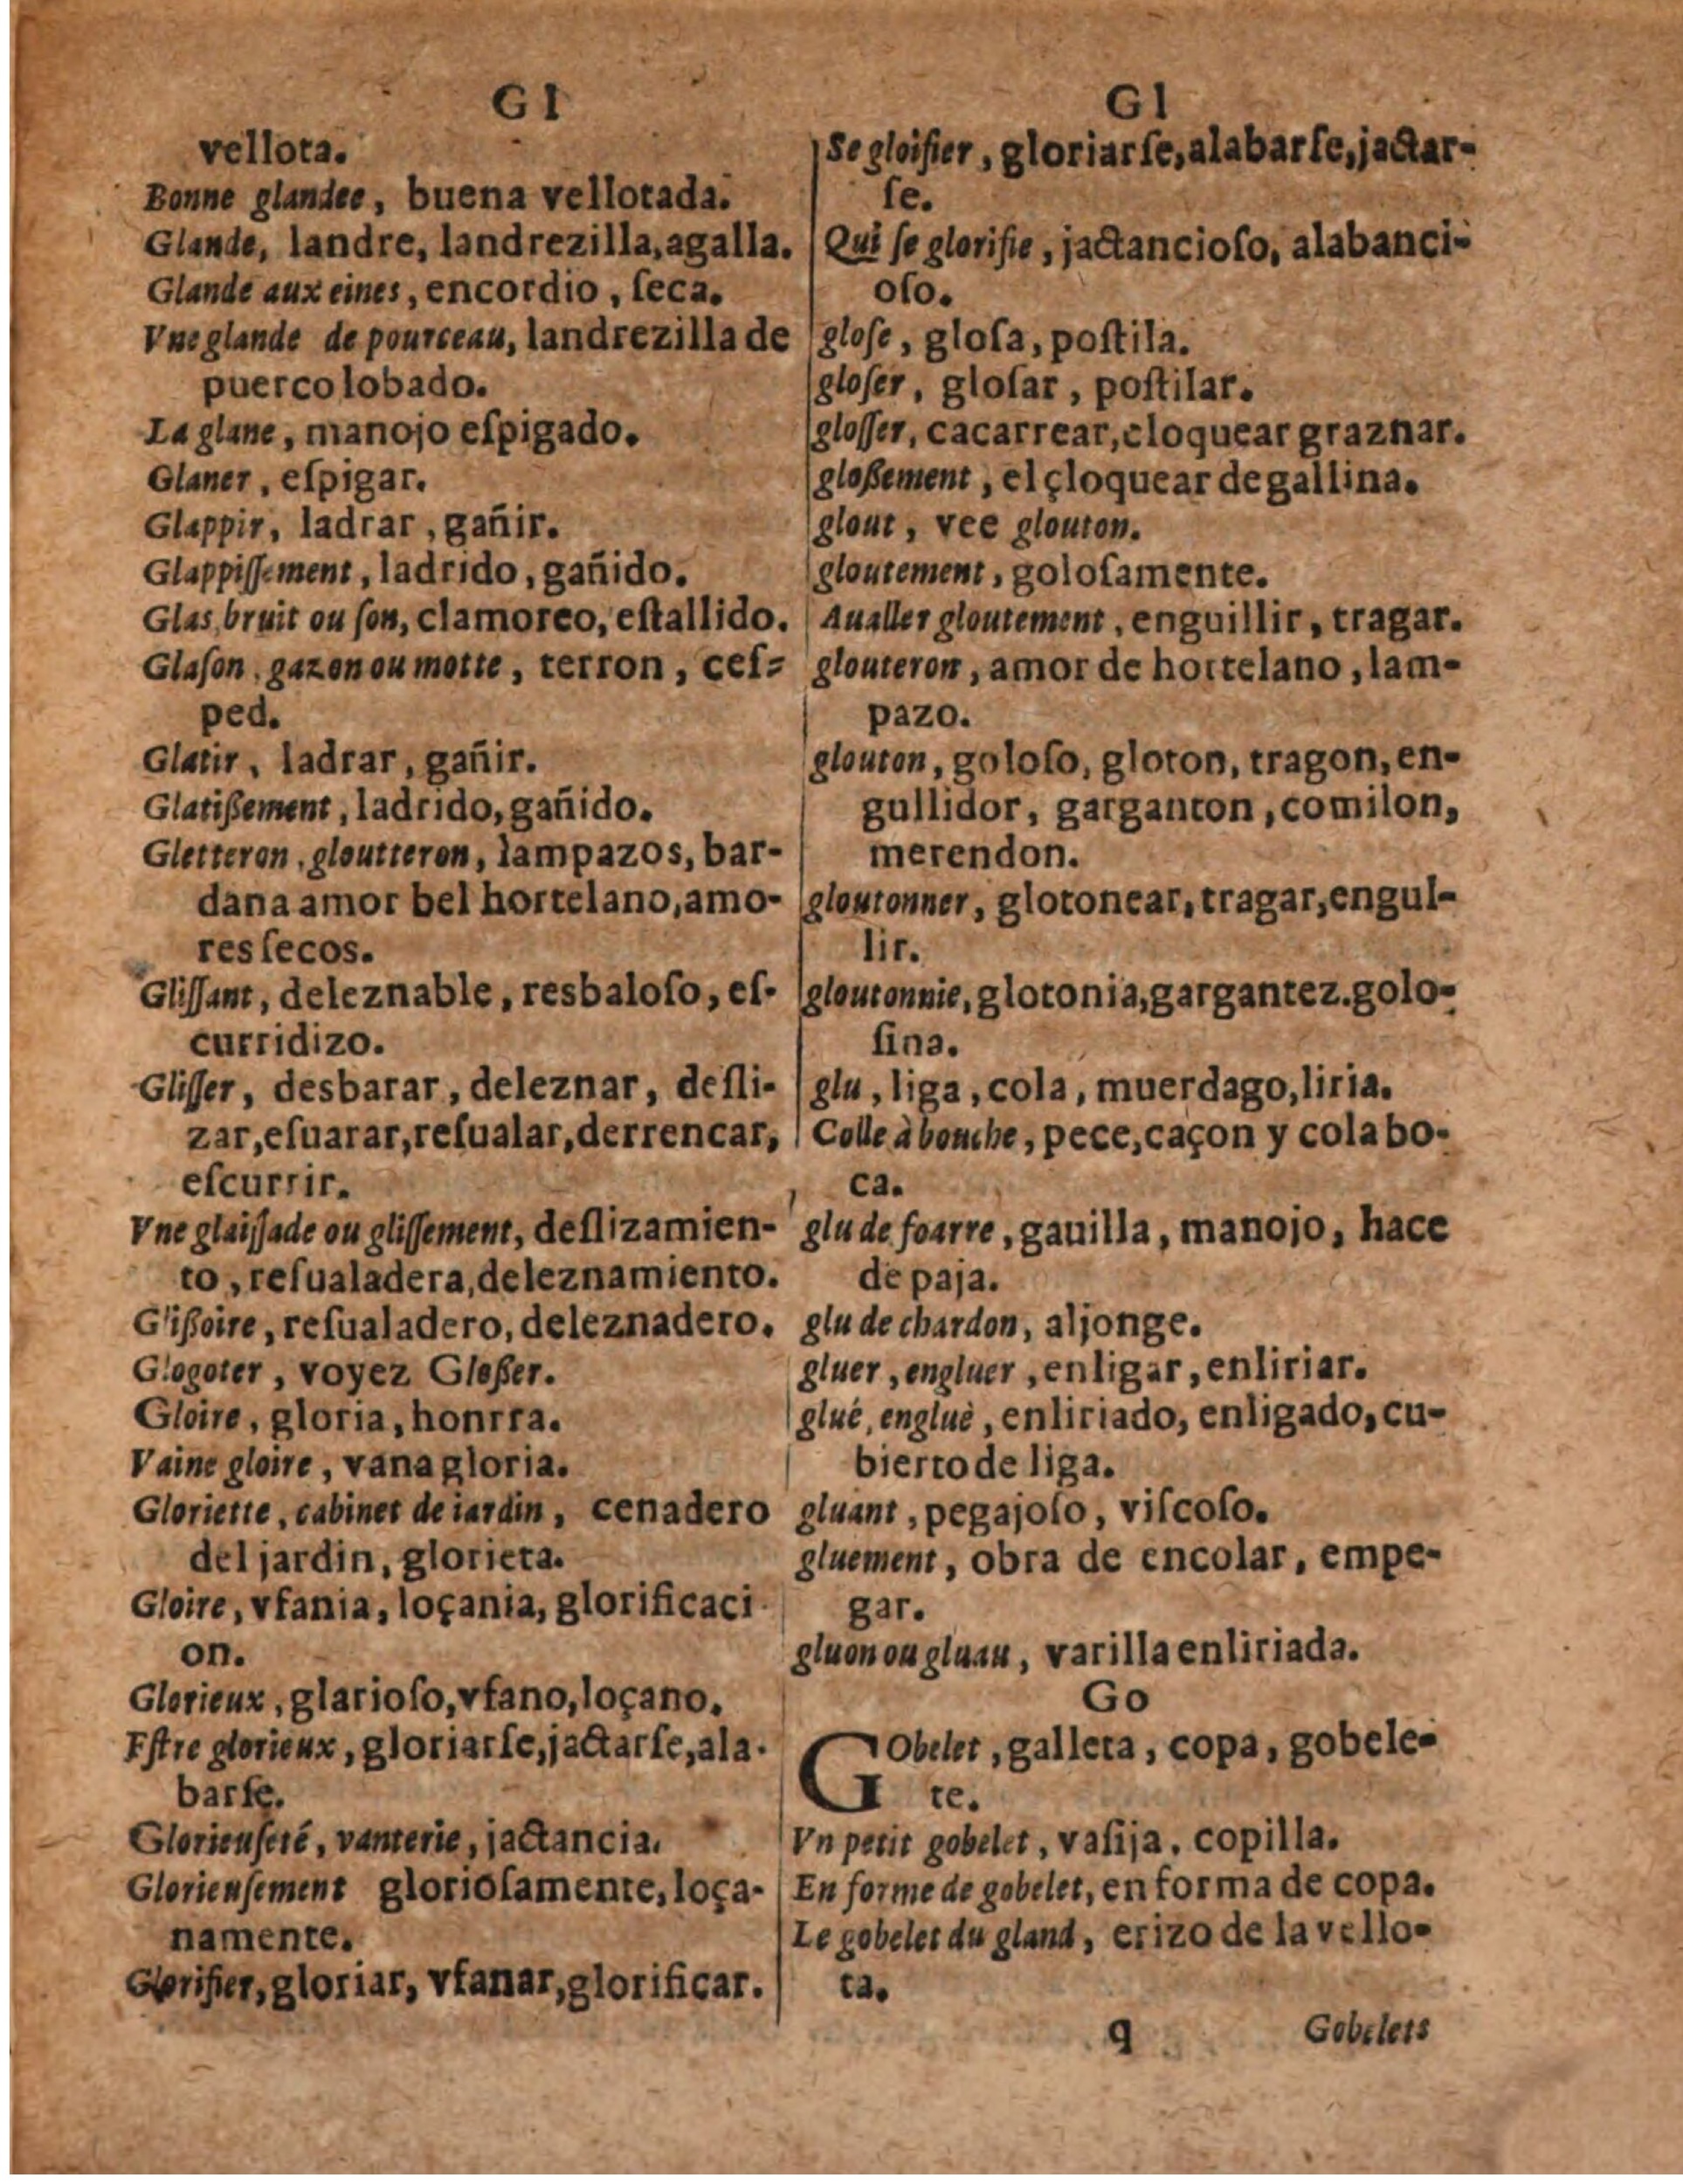 Gl
vellota.
Bonne glandee, buena vellotada.
Glande, landre, landrezilla, agalla.
Glande aux eines, encordio, ſeca.
Vne glande de pourceau, landrezilla de
puerco lobado.
La glane, manojo eſpigado.
Glaner, eſpigar.
Glappir, ladrar, gañir.
Glappiſſement, ladrido, gañido.
Glas, bruit ou ſon, clamoreo, eſtallido.
Glaſon, gazon ou motte, terron, ceſ-
ped.
Glatir, ladrar, gañir.
Glatißement, ladrido, gañido.
Gletteron, gloutteron, lampazos, bar-
dana amor bel hortelano, amo-
res ſecos.
Gliſſant, deleznable, resbaloſo, eſ-
curridizo.
Gliſſer, desbarar, deleznar, deſli-
zar, eſuarar, reſualar, derrencar,
eſcurrir.
Vne glaiſſade ou gliſſement, deſlizamien-
to, reſualadera, deleznamiento.
Glißoire, reſualadero, deleznadero.
Glogoter, voyez Gloßer.
Gloire, gloria, honrra.
Vaine gloire, vana gloria.
Gloriette, cabinet de iardin, cenadero
del jardin, glorieta.
Gloire, vfania, loçania, glorificaci-
on.
Glorieux, glarioſo, vfano, loçano.
Eſtre glorieux, gloriarſe, jactarſe, ala-
barſe.
Glorieuſeté, vanterie, jactancia.
Glorieuſement glorioſamente, loça-
namente.
Glorifier, gloriar, vfanar, glorificar.
Gl
Se gloifier, gloriarſe, alabarſe, jactar-
ſe.
Qui ſe glorifie, jactancioſo, alabanci-
oſo.
gloſe, gloſa, poſtila.
gloſer, gloſar, poſtilar.
gloſſer, cacarrear, cloquear graznar.
gloßement, el çloquear de gallina.
glout, vee glouton.
gloutement, goloſamente.
Aualler gloutement, enguillir, tragar.
glouteron, amor de hortelano, lam-
pazo.
glouton, goloſo, gloton, tragon, en-
gullidor, garganton, comilon,
merendon.
gloutonner, glotonear, tragar, engul-
lir.
gloutonnie, glotonia, gargantez. golo-
ſina.
glu, liga, cola, muerdago, liria.
Colle à bouche, pece, caçon y cola bo-
ca.
glu de foarre, gauilla, manojo, hace
de paja.
glu de chardon, aljonge.
gluer, engluer, enligar, enliriar.
glué, engluè, enliriado, enligado, cu-
bierto de liga.
gluant, pegajoſo, viſcoſo.
gluement, obra de encolar, empe-
gar.
gluon ou gluau, varilla enliriada.
Go
GObelet, galleta, copa, gobele-
te.
Vn petit gobelet, vaſija, copilla.
En forme de gobelet, en forma de copa.
Le gobelet du gland, erizo de la vello-
ta.
q Gobelets